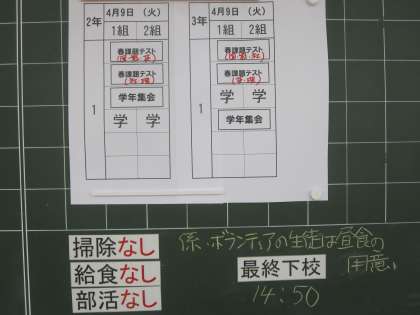 2年 4月9日 (火)
1組 2組
春課題テスト
春課題テスト
1
学年集会
学 学
3年 4月9日 (火)
1組 2組
春課題テスト
春課題テスト
1
学 学
学年集会
掃除なし
給食なし
部活なし
係・ボランティアの生徒は昼食の
用意
最終下校
14:50